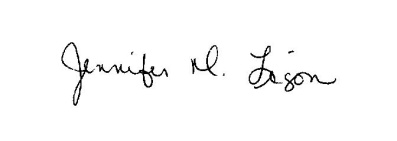 Jennifer M. Lizon